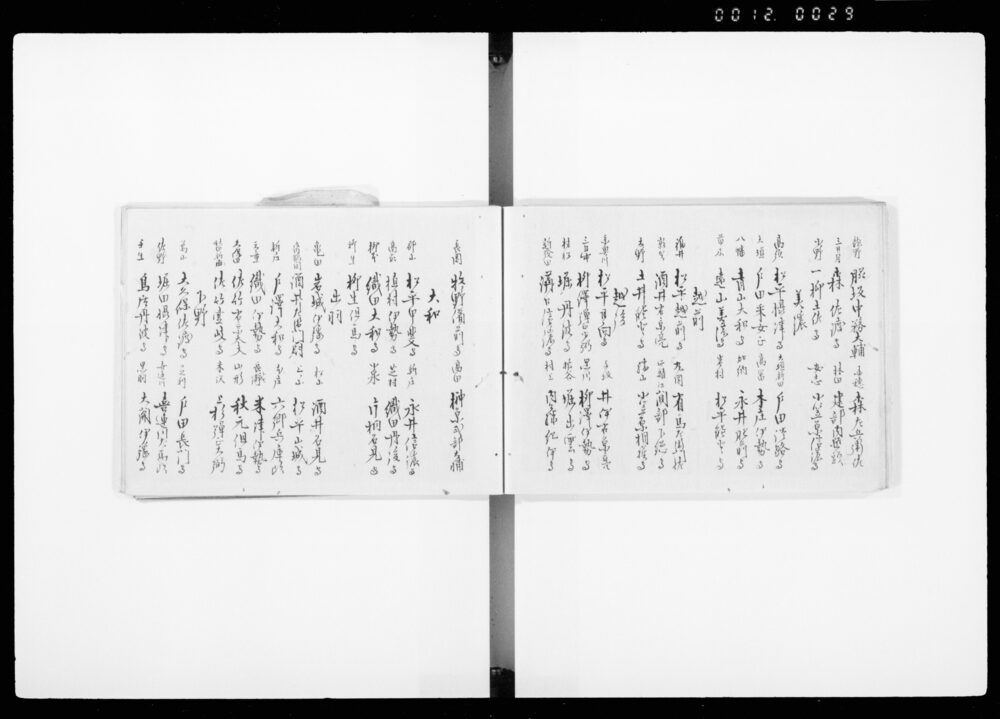 0012. 0029
龍野 脇坂中務大輔 赤穂 森左兵衛佐
三日月 森佐渡守 林田 建部内匠頭
小野 一柳土佐守 安志 小笠原信濃守
美濃
高須 松平摂津守 大垣新田 戸田淡路守
大垣 戸田采女正 高富 本庄伊勢守
八幡 青山大和守 加納 永井肥前守
苗木 遠山美濃守 岩村 松平能登守
越前
福井 松平越前守 丸岡 有馬左兵衛佐
敦賀 酒井右京亮 西鯖江 間部下総守
大野 土井能登守 勝山 小笠原相模守
越後
糸魚川 松平日向守 与板 井伊右京亮
三日市 柳澤弾正少弼 黒川 柳澤伊勢守
村松 堀丹波守 椎谷 堀出雲守
新発田 溝口信濃守 村上 内藤紀伊守
長岡 牧野備前守 高田 榊原式部大輔
大和
郡山 松平甲斐守 新庄 永井信濃守
高取 植村伊勢守 芝村 織田丹後守
柳本 織田大和守 小泉 片桐石見守
柳生 柳生但馬守
出羽
亀田 岩城伊豫守 松山 酒井石見守
酒井左衛門尉 上山 松平山城守
新庄 戸澤大和守 本庄 六郷兵庫頭
天童 織田伊勢守 長瀞 米津伊勢守
久保田 佐竹右京大夫 山形 秋元但馬守
佐竹壹岐守 米沢 上杉弾正大弼
下野
烏山 大久保佐渡守 足利 戸田長門守
佐野 堀田摂津守 喜連川 喜連川左馬頭
壬生 鳥居丹波守 黒羽 大関伊豫守